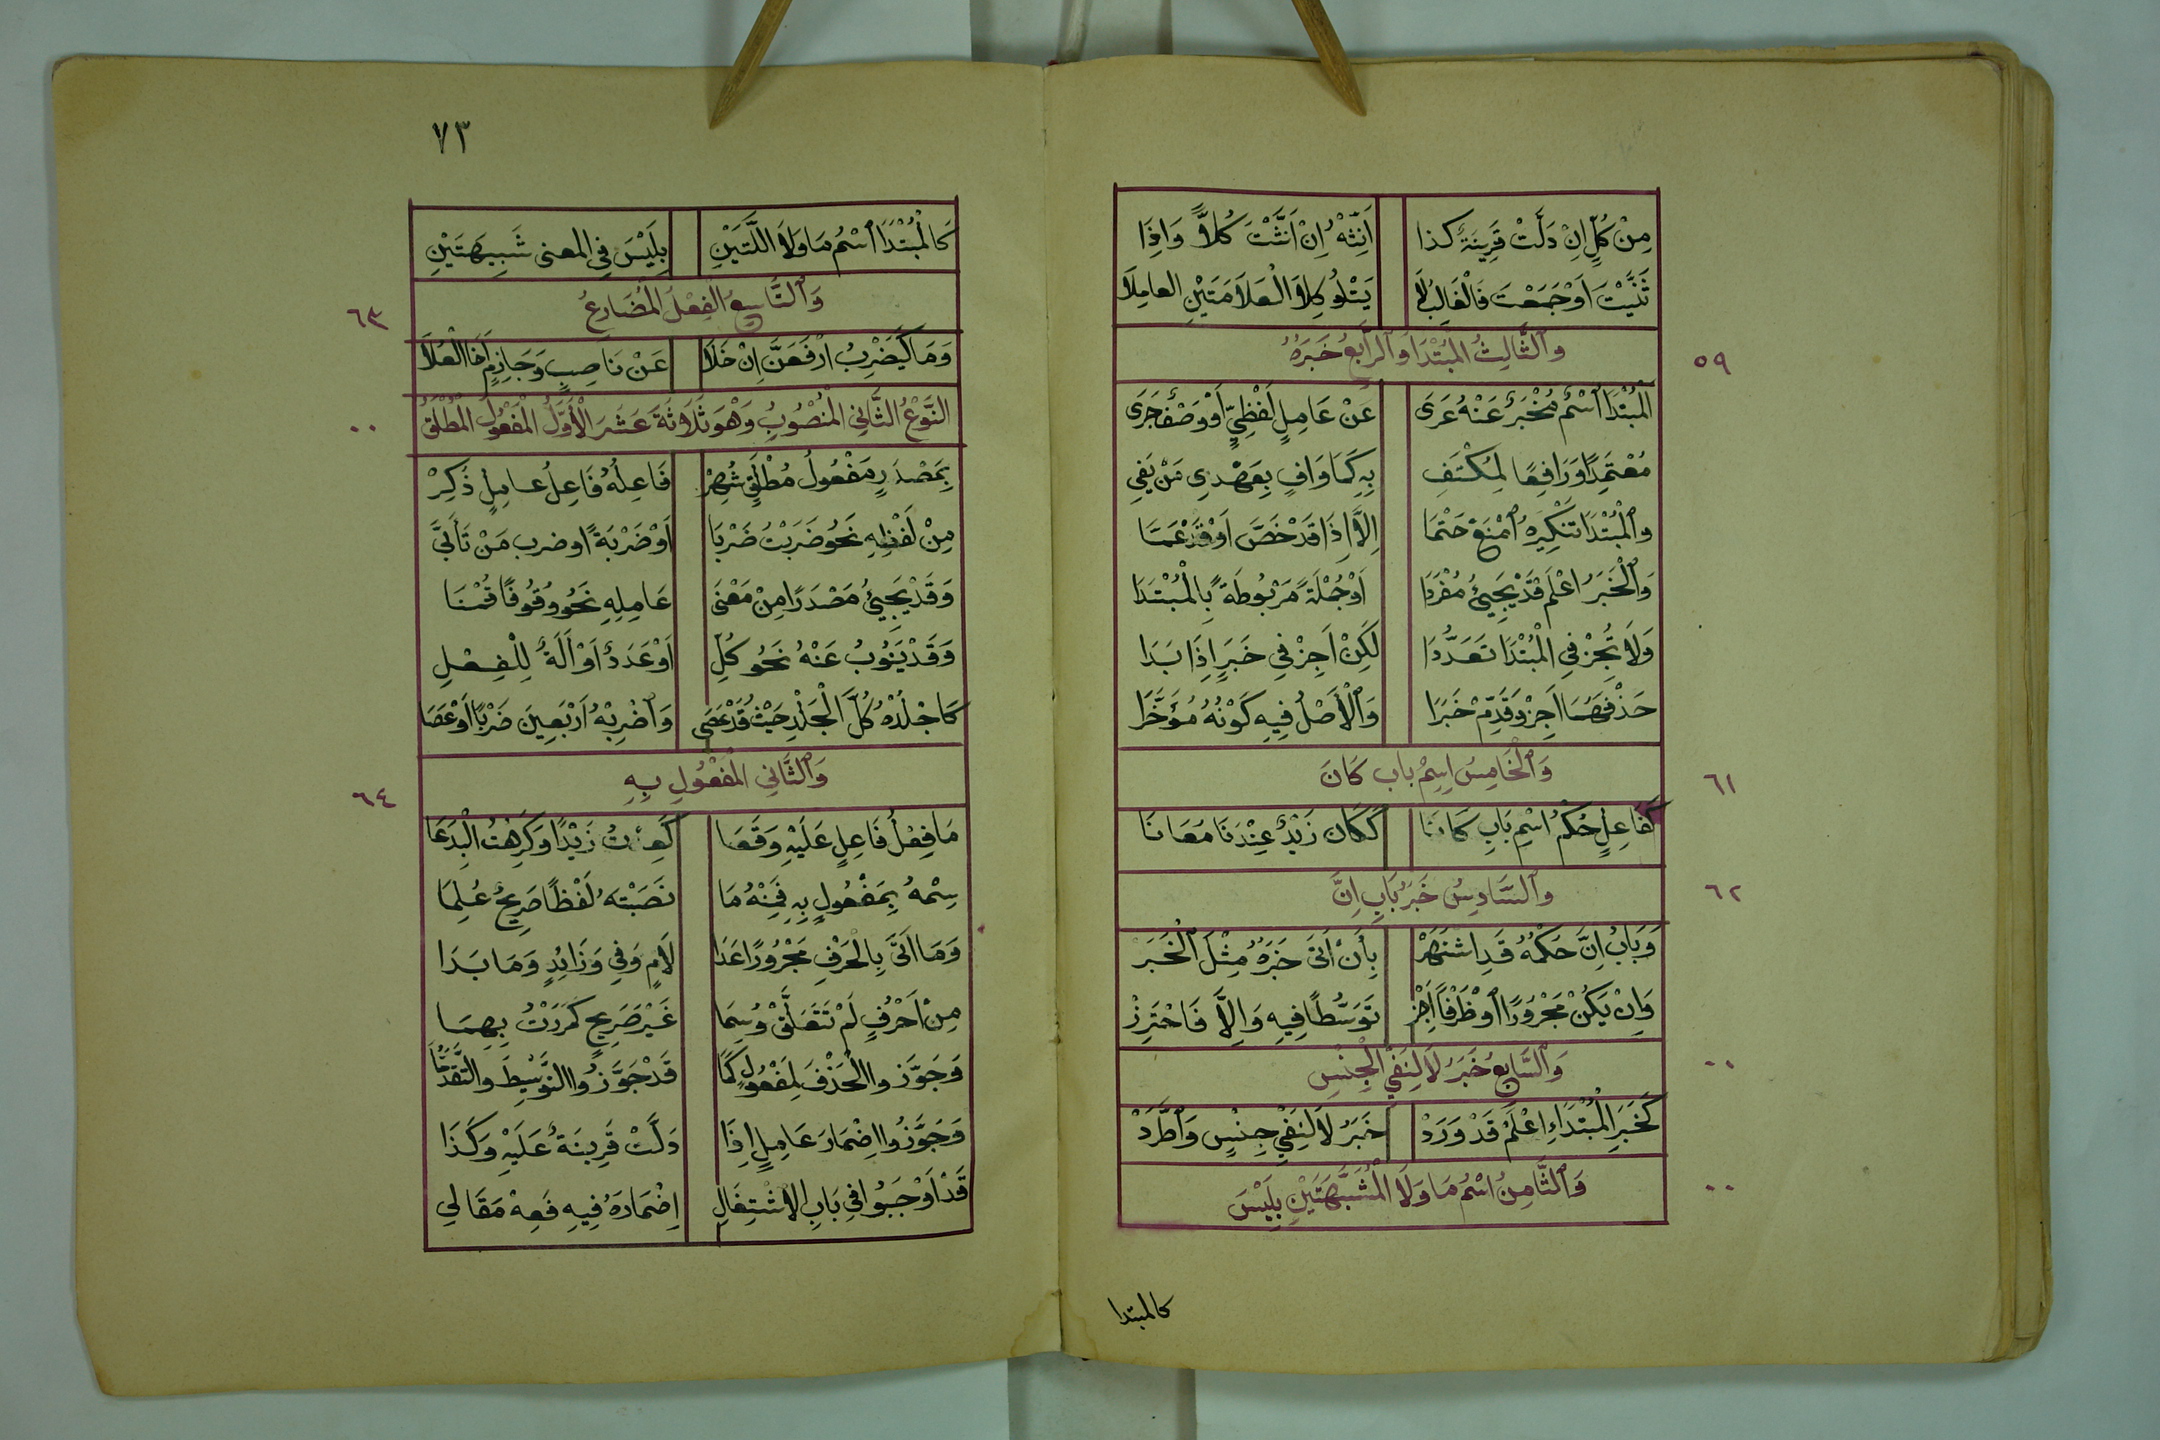 مِنْ كُلٍّ اِنْ دَلَّتْ قَرِينَةٌ كذا اَنِّثْهُ اِنْ اَنَّثْتَ كُلاًّ وَاِذَا
ثَنَّيْتَ اَوْ جَمَعْتَ فَالْغَالِبُ لَا يَتْلُو كِلَا الْعَلَامَتَيْنِ العامِلَا
وَٱلثَّالِثُ المُبْتَدَا وَٱلرَّابِعُ خَبَرُهُ
٥٩
اَلْمُبْتَدَا ٱسْمٌ مُخْبَرٌ عَنْهُ عَرَى عَنْ عَامِلٍ لَفْظِيٍّ اَوْ وَصْفٌ جَرَى
مُعْتَمِدًا وَرَافِعًا لِمُكْتَفِ بِهِ كَمَا وَافٍ بِعَهْدِى مَنْ يَفِي
وَٱلْمُبْتَدَا تَنْكِيرَهُ ٱمْنَعْ حَتْمَا اِلَّا اِذَا قَدْ خَصَّ اَوْ قَدْ عَمَّا
وَٱلْخَبَرُ اعْلَمْ قَدْ يَجِيئُ مُفْرَدَا اَوْ جُمْلَةً مَرْبُوطَةً بِالْمُبْتَدَا
وَلَا تُجِزْ فِي الْمُبْتَدَا تَعَدُّدَا لَكِنْ اَجِزْ فِي خَبَرٍ اِذَا بَدَا
حَذْفَهُمَا اَجِزْ وَقَدِّمْ خَبَرَا وَٱلْأَصْلُ فِيهِ كَوْنُهُ مُؤَخَّرَا
وَٱلْخَامِسُ اِسْمُ باب كَانَ
٦١
كَفَاعِلٍ حُكْمُ اسْمِ بَابِ كَانَا كَكَانَ زَيْدٌ عِنْدَنَا مُعَانَا
وَٱلسَّادِسُ خَبَرُ بَابِ اِنَّ
٦٢
وَبَابُ اِنَّ حُكْمُهُ قَدِ اشتَهَرْ بِأَنْ اَتَى خَبَرُهُ مِثْلَ ٱلْخَبَرْ
وَاِنْ يَكُنْ مَجْرُورًا اَوْ ظَرْفًا اَجِزْ تَوَسُّطًا فِيهِ وَاِلَّا فَاحْتَرِزْ
وَٱلسَّابِعُ خَبَرُ لَا لِنَفْيِ الْجِنْسِ
٠٠
كَخَبَرِ الْمُبْتَدَاءِ اعْلَمْ قَدْ وَرَدْ خَبَرُ لَا لِنَفْيِ جِنْسٍ وَٱطَّرَدْ
وَٱلثَّامِنُ اسْمُ مَا وَلَا الْمُشَبَّهَتَيْنِ بِلَيْسَ
٠٠
كالمبتدا
٧٣
كَالْمُبْتَدَا ٱسْمُ مَا وَلَا اللَّتَيْنِ بِلَيْسَ فِي المعنى شَبِيهَتَيْنِ
وَٱلتَّاسِعُ الْفِعْلُ الْمُضَارِعُ
٦٣
وَمَا كَيَضْرِبُ ارْفَعَنَّ اِنْ خَلَا عَنْ نَاصِبٍ وَجَازِمٍ اَخَا الْعُلَا
النَّوْعُ الثَّانِي الْمَنْصُوبُ وَهْوَ ثَلَاثَةَ عَشَرَ الْأَوَّلُ الْمَفْعُولُ الْمُطْلَقُ
٠٠
بِمَصْدَرٍ مَفْعُولُ مُطْلَقٍ شُهِرْ فَاعِلُهُ فَاعِلُ عامِلٍ ذُكِرْ
مِنْ لَفْظِهِ نَحْوُ ضَرَبْتُ ضَرْبَا اَوْ ضَرْبَةً او ضرب مَنْ تَأَبَّى
وَقَدْ يَجِيئُ مَصْدَرًا مِنْ مَعْنَى عَامِلِهِ نَحْوُ وُقُوفًا قُمْنَا
وَقَدْ يَنُوبُ عَنْهُ نَحْوُ كُلِّ اَوْ عَدَدٌ اَوْ اَلَةٌ لِلْفِعْلِ
كَاجْلِدْهُ كُلَّ الْجَلْدِ حَيْثُ قَدْ عَصَى وَٱضْرِبْهُ اَرْبَعِينَ ضَرْبًا اَوْ عَصَا
وَٱلثَّانِي الْمَفْعُولِ بِهِ
٦٤
مَا فِعْلُ فَاعِلٍ عَلَيْهِ وَقَعَا زَيْدًا وَكَرِهْتُ الْبِدَعَا
سِمْهُ بِمَفْعُولٍ بِهِ فَمِنْهُ مَا نَصَبْتَهُ لَفْظًا صَرِيحٌ عُلِمَا
وَمَا اَتَى بِالْحَرْفِ مَجْرُورًا عَدَا لَامٍ وَفِي وَزَائِدٍ وَمَا بَدَا
مِنْ اَحْرُفٍ لَمْ تَتَعَلَّقْ وُسِمَا غَيْرَ صَرِيحٍ كَمَرَرْتُ بِهِمَا
وَجَوَّزوا الْحَذْفَ لِمَفْعُولٍ كَمَا قَدْ جَوَّزُوا التَّوْسِيطَ وَالتَّقَدُّمَا
وَجَوَّزُوا اِضْمَارَ عَامِلٍ اِذَا دَلَّتْ قَرِينَةٌ عَلَيْهِ وَكَذَا
قَدْ اَوْجَبُوا فِي بَابِ الْاِشْتِغَالِ اِضْمَارَهُ فِيهِ فَعِهْ مَقَالِي